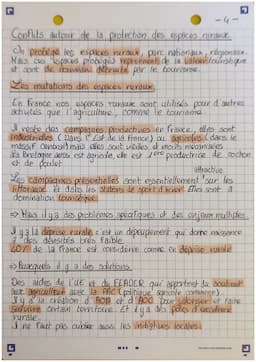 - 4 -
Conflits autour de la protection des espaces ruraux
On protège les espaces ruraux, parc nationaux, régionaux.
Mais ces espaces protégés reprennent de la valeur touristique
et sont de nouveau détruits par le tourisme.
Les mutations des espaces ruraux
En France nos espaces ruraux sont utilisés pour d'autres
activités que l'agriculture, comme le tourisme
Il reste des campagnes productives en France, elles sont
industrielles (dans l'Est de la France) ou agricoles (dans le
massif central) mais elles sont vieilles et moins
La Bretagne aussi est agricole, elle est 1ère productrice de cochon
et de poulet
attractive
Les campagnes présentielles sont essentiellement sur les
littoraux et dans les stations de sport d'hiver. Elles sont à
domination touristique
⇒ Mais il y a des problèmes spécifiques et des enjeux multiples.
Il y a la déprise rurale : c'est un dépeuplement qui donne naissance
à des densités très faible
40% de la France est considérée comme en déprise rurale
⇒ il y a des solutions
Des aides de l'UE et du FEADER qui apportent du soutient
aux agriculteurs avec la PAC (politique agricole commune).
Il y a la création d'AOP et d'AOC pour valoriser et faire
certain territoire. Et il y a des pôles d'excellence
rurale.
Il ne faut pas oublier aussi les initiatives locales.